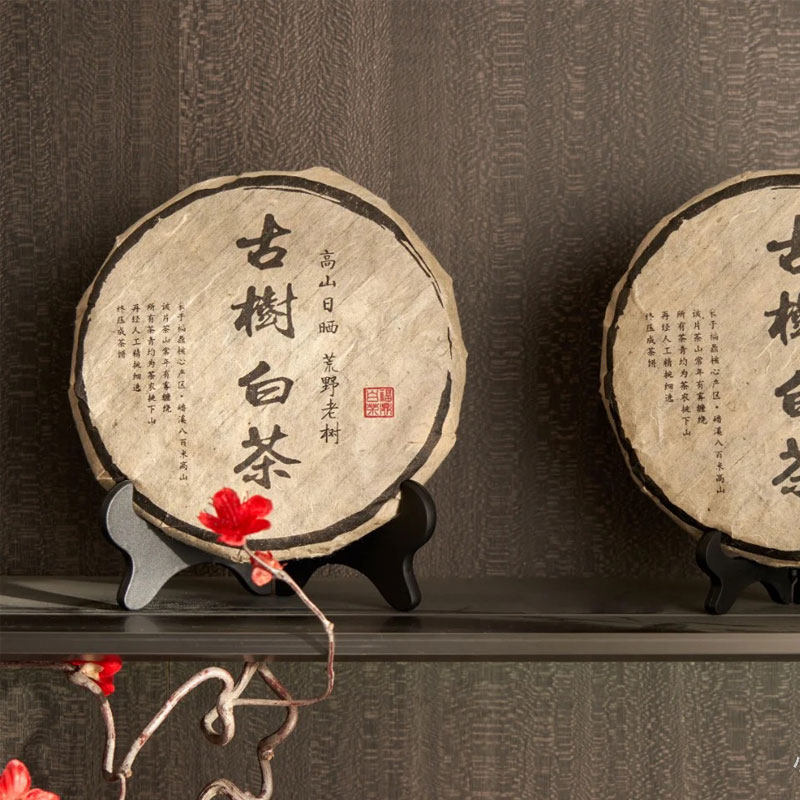 古樹白茶
高山日晒 荒野老树
福鼎白茶
长于福鼎核心产区·磻溪八百米高山
该片茶山常年有雾缠绕
所有茶青均为茶农挑下山
再经人工精挑细选
终压成茶饼
古樹白茶
长于福鼎核心产区·磻溪八百米高山
该片茶山常年有雾缠绕
所有茶青均为茶农挑下山
再经人工精挑细选
终压成茶饼